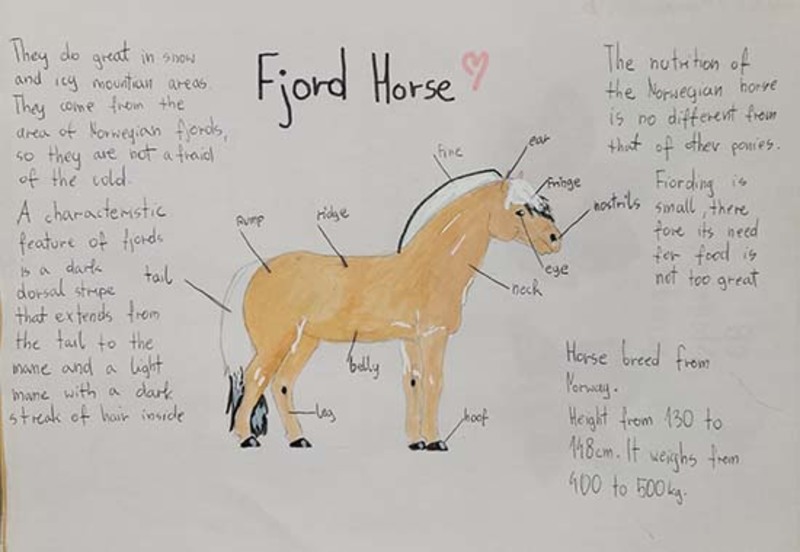 Fjord Horse
They do great in snow
and icy mountian areas.
They come from the
area of Norwegian fjords,
so they are not afraid
of the cold.
A characteristic
feature of fjords
is a dark
dorsal stripe
that extends from
the tail to the
mane and a light
mane with a dark
streak of hair inside
The nutrition of
the Norwegian horse
is no different from
that of other ponies.
Fiording is
small, there
fore its need
for food is
not too great
Horse breed from
Norway.
Height from 130 to
148cm. It weighs from
400 to 500kg.
fine
ear
fringe
nostrils
eye
neck
rump
ridge
tail
belly
leg
hoof